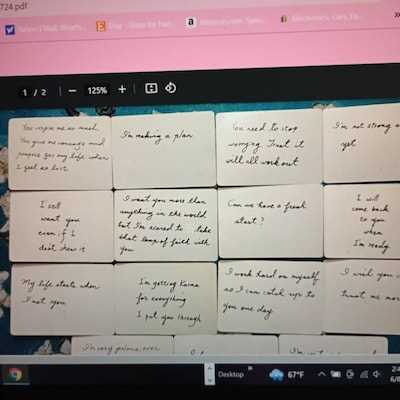 724.pdf
Etsy - Shop for han
a
Electronics, Cars, Fa
1 / 2
125%
You inspire me so much
You give me courage and
purpose for my life when
I feel so lost
I'm making a plan
You need to stop
worrying. Trust it
will all work out
I'm not strong
yet
I still
want you
even if I
don't show it
I want you more than
anything in the world
but I'm scared to take
that leap of faith with
you
Can we have a fresh
start?
I will
come back
to you
when
I'm ready
My life starts when
I met you
I'm getting Karma
for everything
I put you through
I work hard on myself
so I can catch up to
you one day
I wish you
trust me more
Desktop
67°F
2:4
6/